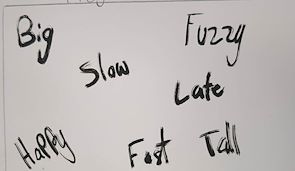 Big
Fuzzy
Slow
Late
Happy
Fast
Tall